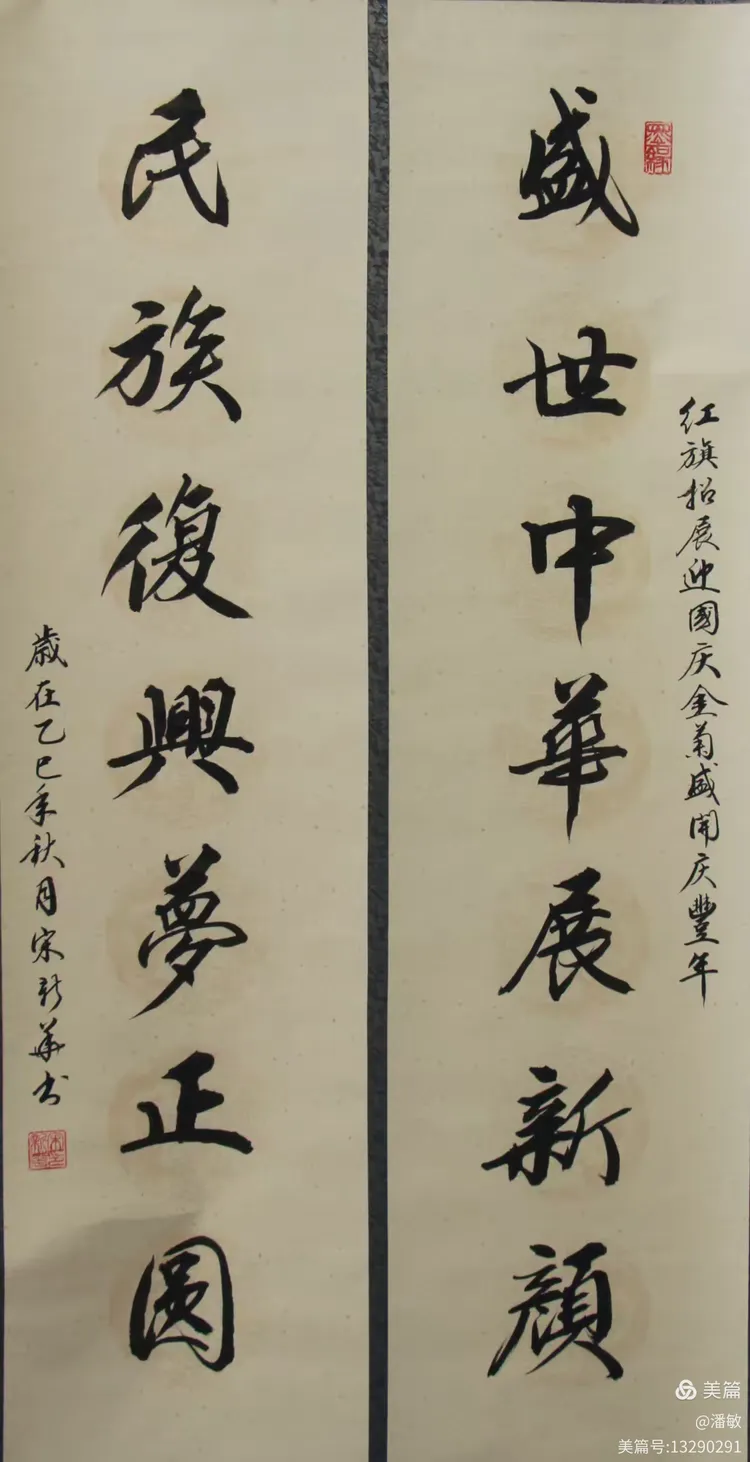 盛世中華展新顏
紅旗招展迎國庆金菊盛開庆豐年
民族復興夢正圓
歲在乙巳年秋月宋新華书
美篇
@潘敏
美篇号:13290291